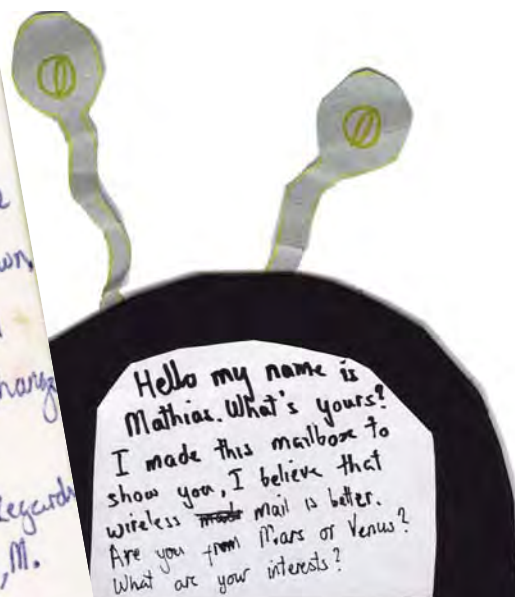 wn,
Regards
, M.
Hello my name is
Mathias. What's yours?
I made this mailbox to
show you, I believe that
wireless made mail is better.
Are you from Mars or Venus?
What are your interests?